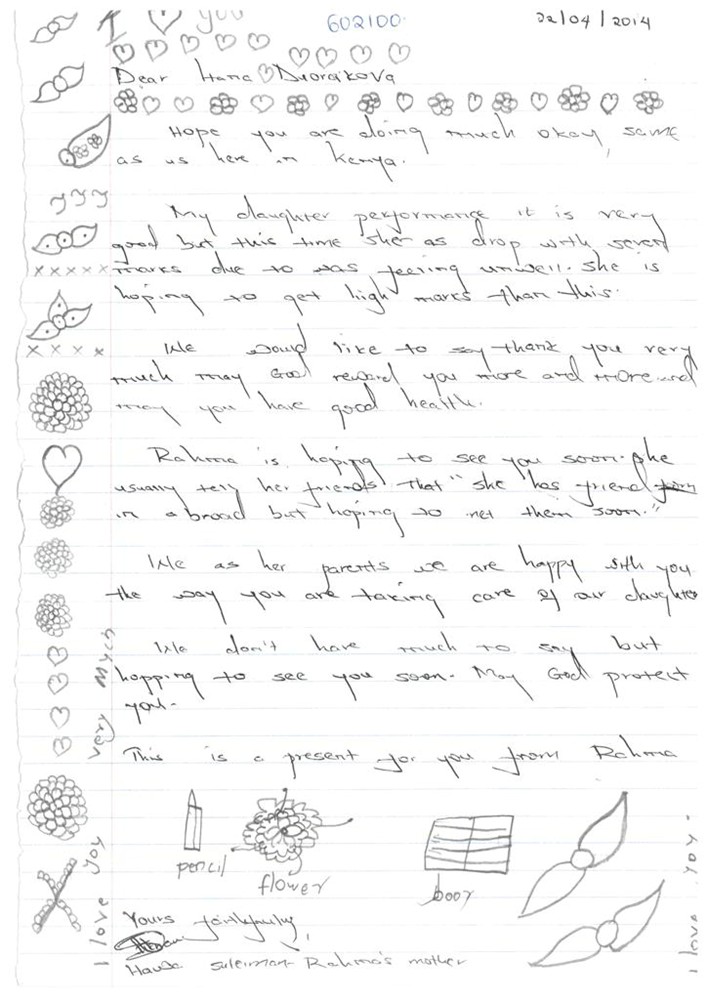 I you
602100.
22/04/2014
Dear Hana Dvorakova
Hope you are doing much okey, same
as us here in Kenya.
My daughter performance it is very
good but this time she as drop with seven
xxxxx marks due to was feeling unwell. She is
hoping to get high marks than this.
xxxx We would like to say thank you very
much may God reward you more and more and
may you have good health.
Rahma is hoping to see you soon. She
usually tell her friends that "she has friend from
in a broad but hoping to net them soon."
We as her parents we are happy with you
the way you are taking care of our daughter
We don't have much to say but
hopping to see you soon. May God protect
you.
This is a present for you from Rahma
pencil
flower
book
Yours faithfully,
Suleiman Rahma's mother
I love you very Much
I love you.